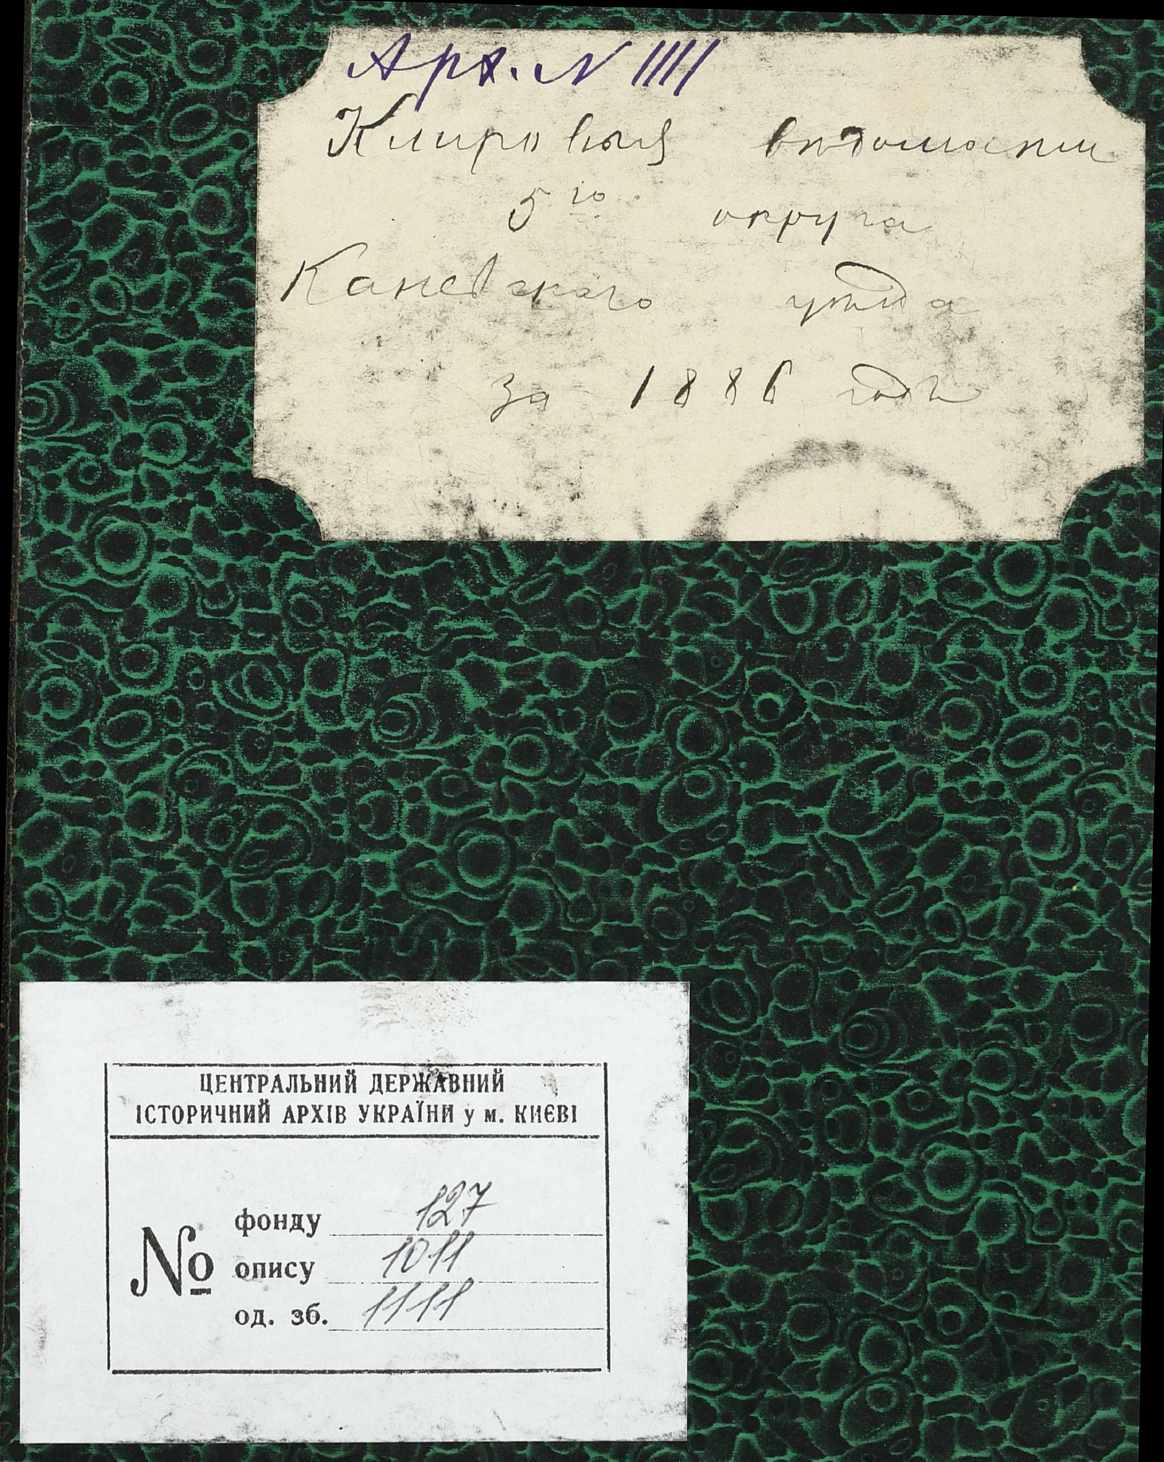 Арх. N 1111
Клировыя вѣдомости
5го округа
Каневскаго уѣзда
за 1886 годъ
ЦЕНТРАЛЬНИЙ ДЕРЖАВНИЙ
ІСТОРИЧНИЙ АРХІВ УКРАЇНИ у м. КИЄВІ
№
фонду 127
опису 1011
од. зб. 1111